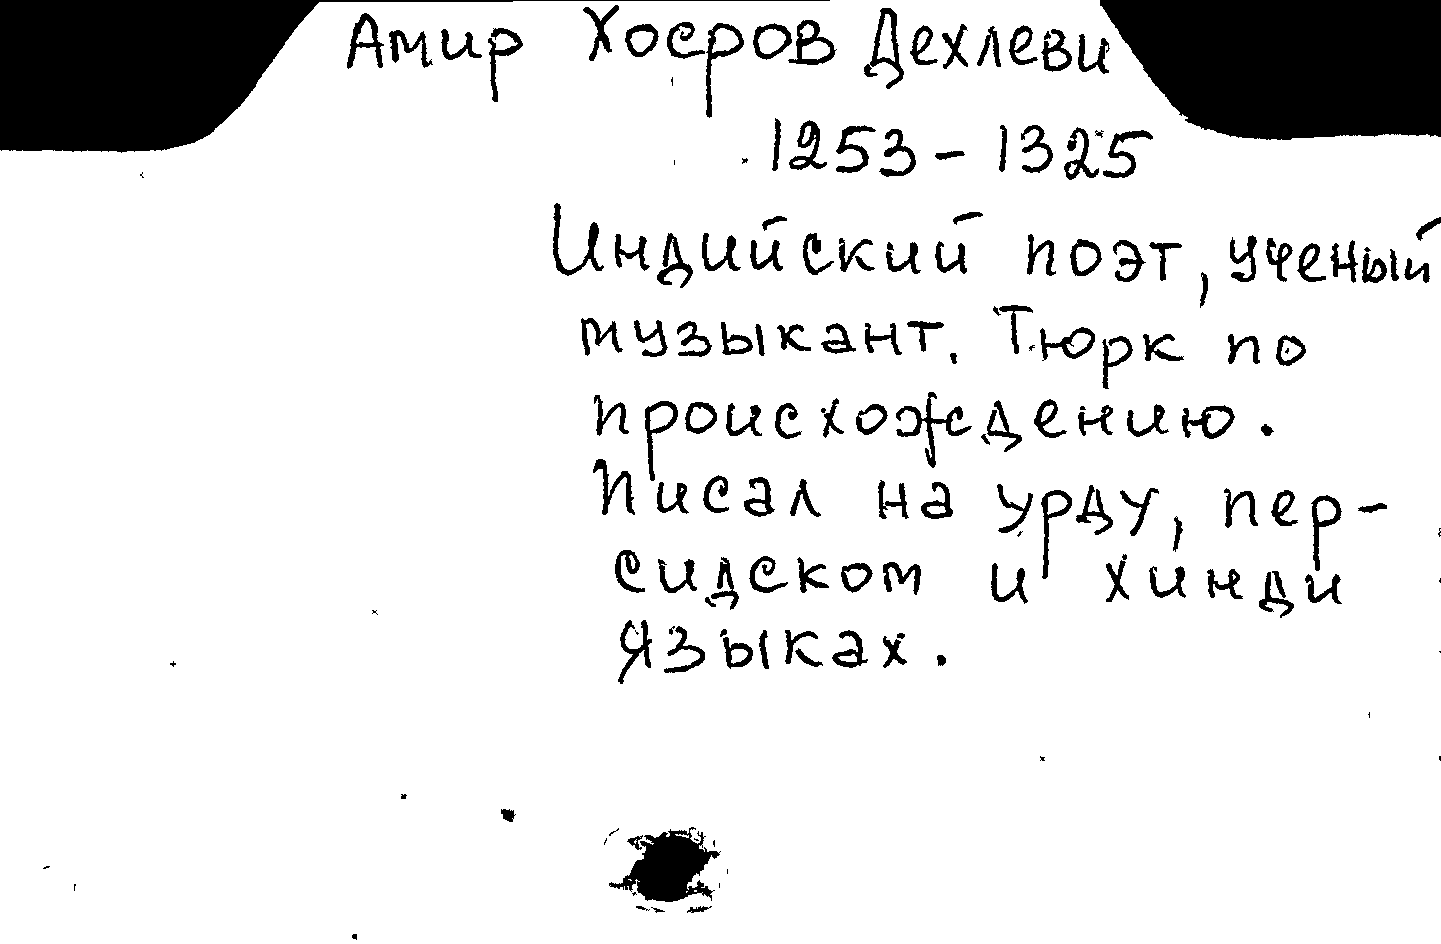 Амир Хосров Дехлеви
1253 - 1325
Индийский поэт, ученый
музыкант. Тюрк по
происхождению.
Писал на урду, пер-
сидском и хинди
языках.